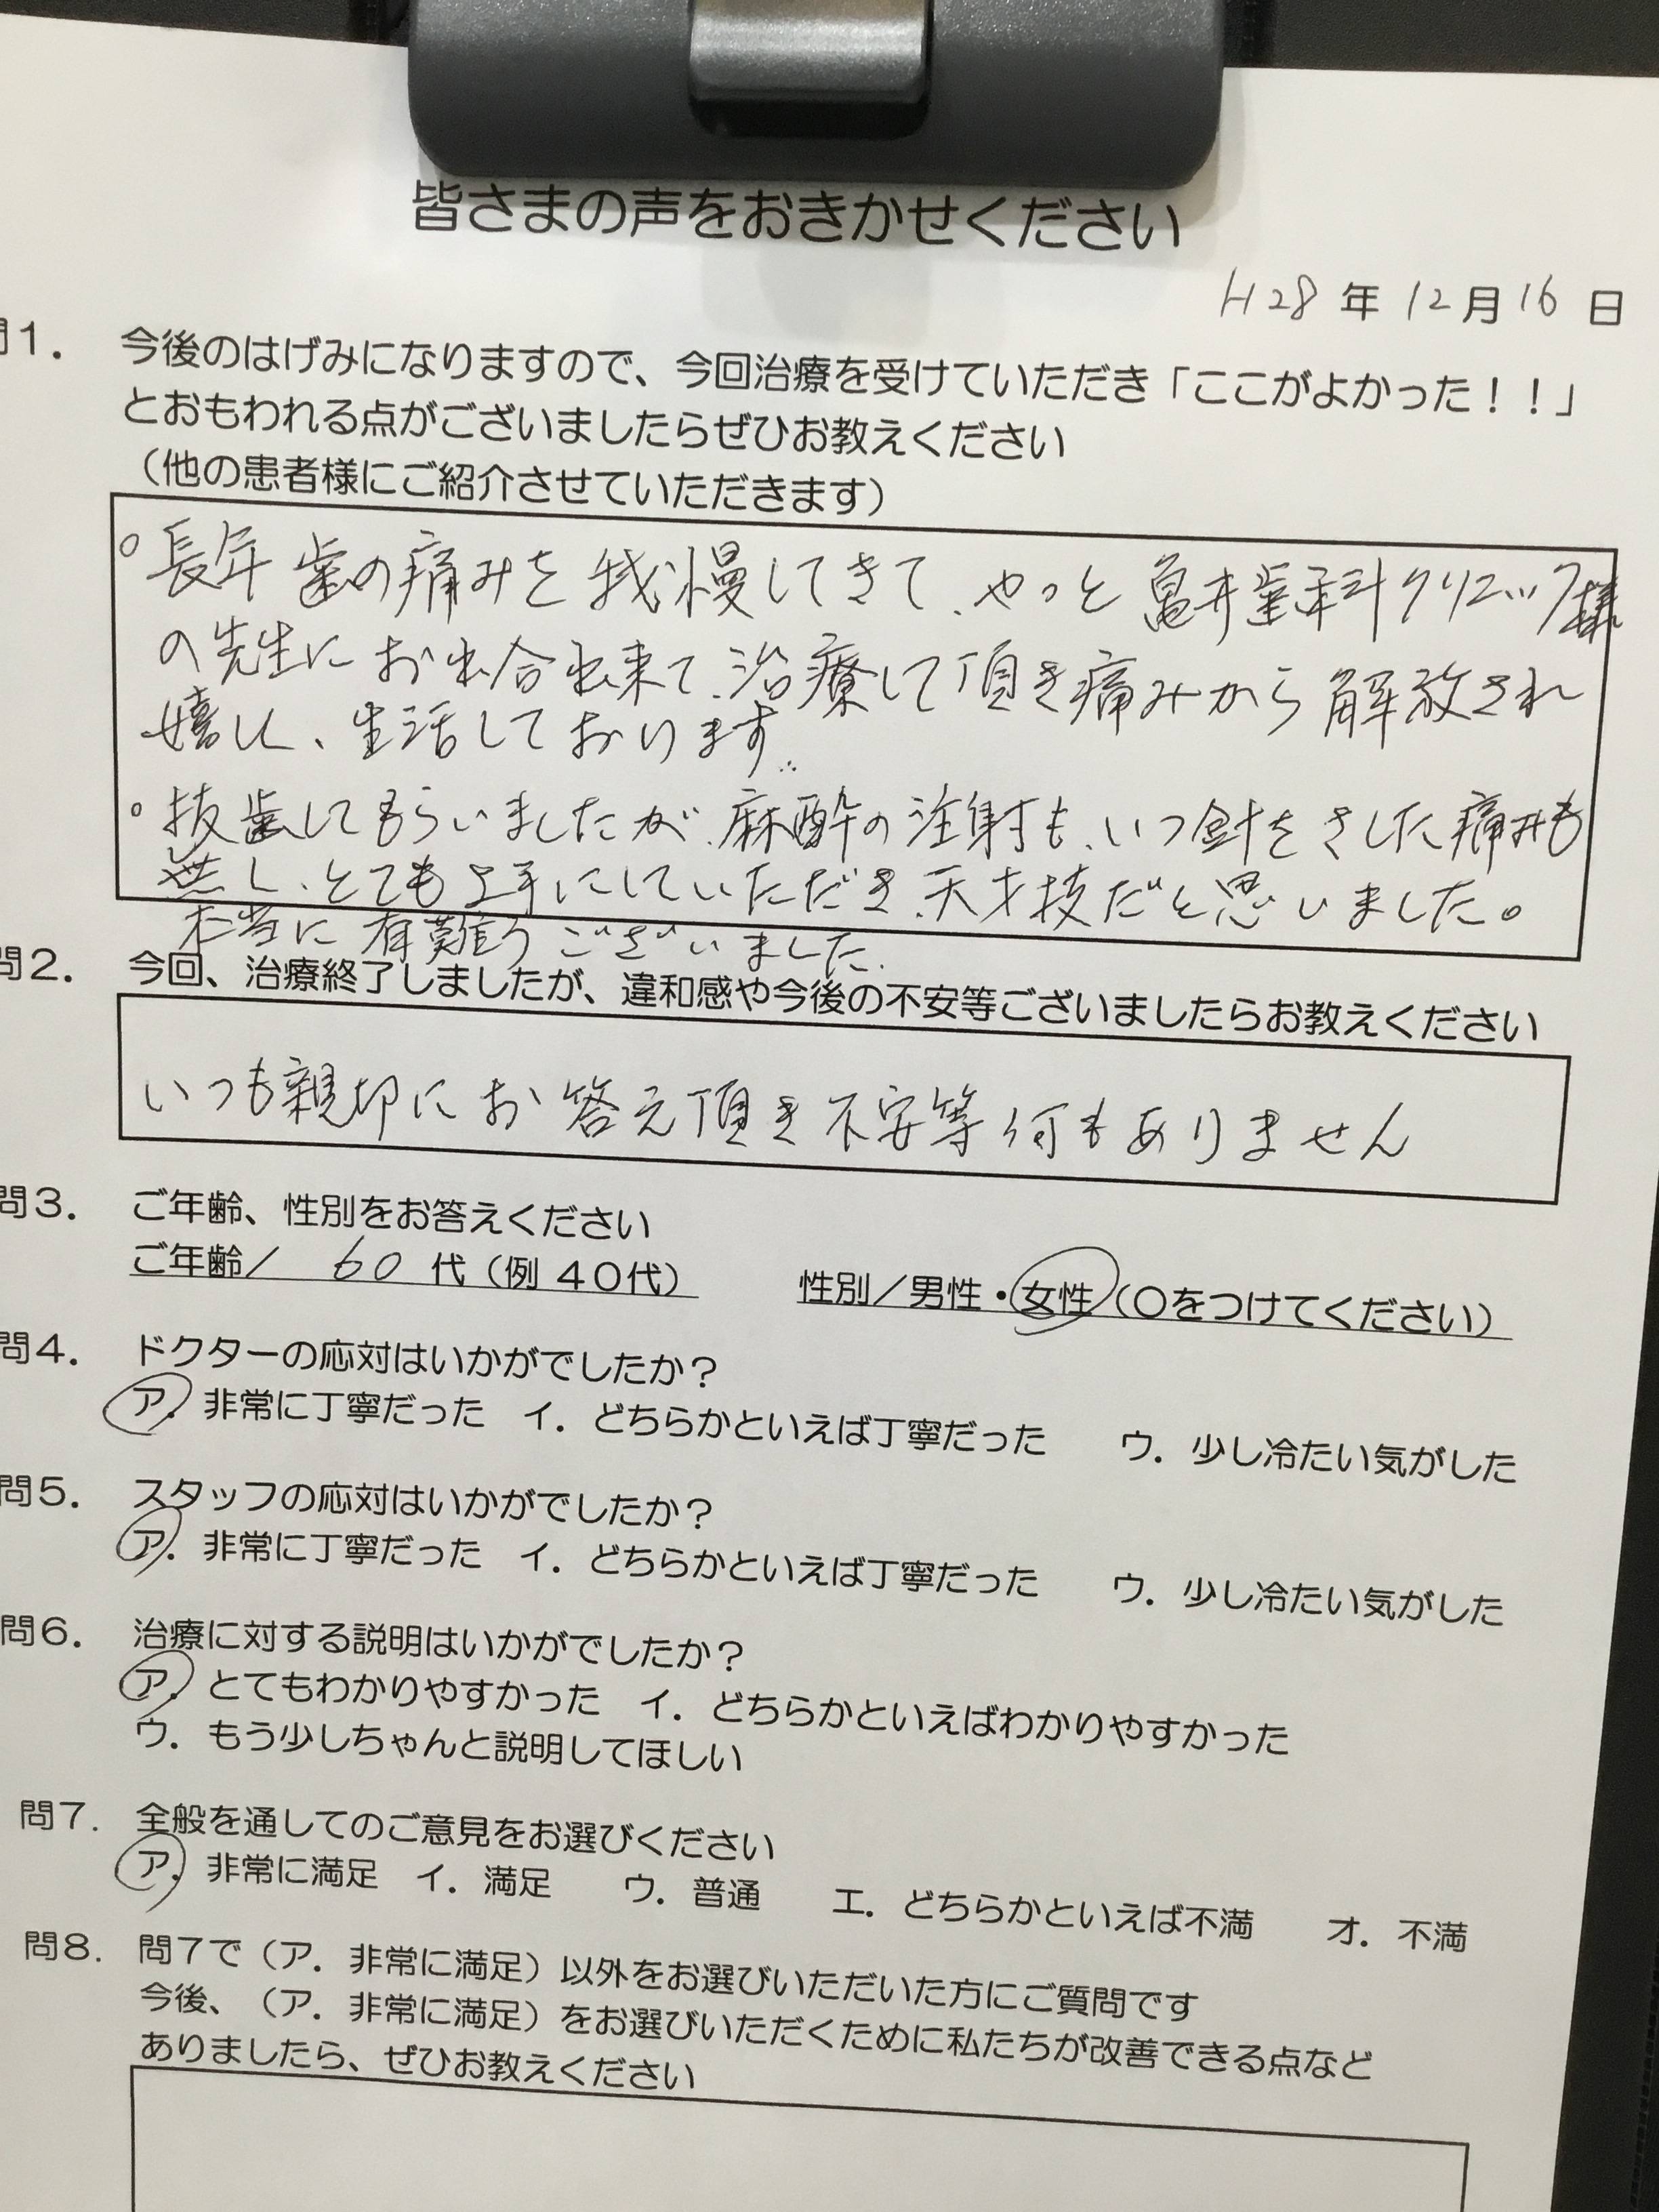 皆さまの声をおきかせください
H28年12月16日
問1. 今後のはげみになりますので、今回治療を受けていただき「ここがよかった！！」
とおもわれる点がございましたらぜひお教えください
（他の患者様にご紹介させていただきます）
○長年歯の痛みを我慢してきて、やっと亀井歯科クリニック様
の先生にお出合出来て、治療して頂き痛みから解放され
嬉しく、生活しております。
○抜歯してもらいましたが、麻酔の注射も、いつ針をさした痛みも
無し、とても上手にしていただき、天才技だと思いました。
本当に有難うございました。
問2. 今回、治療終了しましたが、違和感や今後の不安等ございましたらお教えください
いつも親切にお答え頂き不安等何もありません
問3. ご年齢、性別をお答えください
ご年齢／ 60 代（例 40代） 性別／男性・女性（○をつけてください）
問4. ドクターの応対はいかがでしたか？
ア. 非常に丁寧だった イ. どちらかといえば丁寧だった ウ. 少し冷たい気がした
問5. スタッフの応対はいかがでしたか？
ア. 非常に丁寧だった イ. どちらかといえば丁寧だった ウ. 少し冷たい気がした
問6. 治療に対する説明はいかがでしたか？
ア. とてもわかりやすかった イ. どちらかといえばわかりやすかった
ウ. もう少しちゃんと説明してほしい
問7. 全般を通してのご意見をお選びください
ア. 非常に満足 イ. 満足 ウ. 普通 エ. どちらかといえば不満 オ. 不満
問8. 問7で（ア. 非常に満足）以外をお選びいただいた方にご質問です
今後、（ア. 非常に満足）をお選びいただくために私たちが改善できる点など
ありましたら、ぜひお教えください